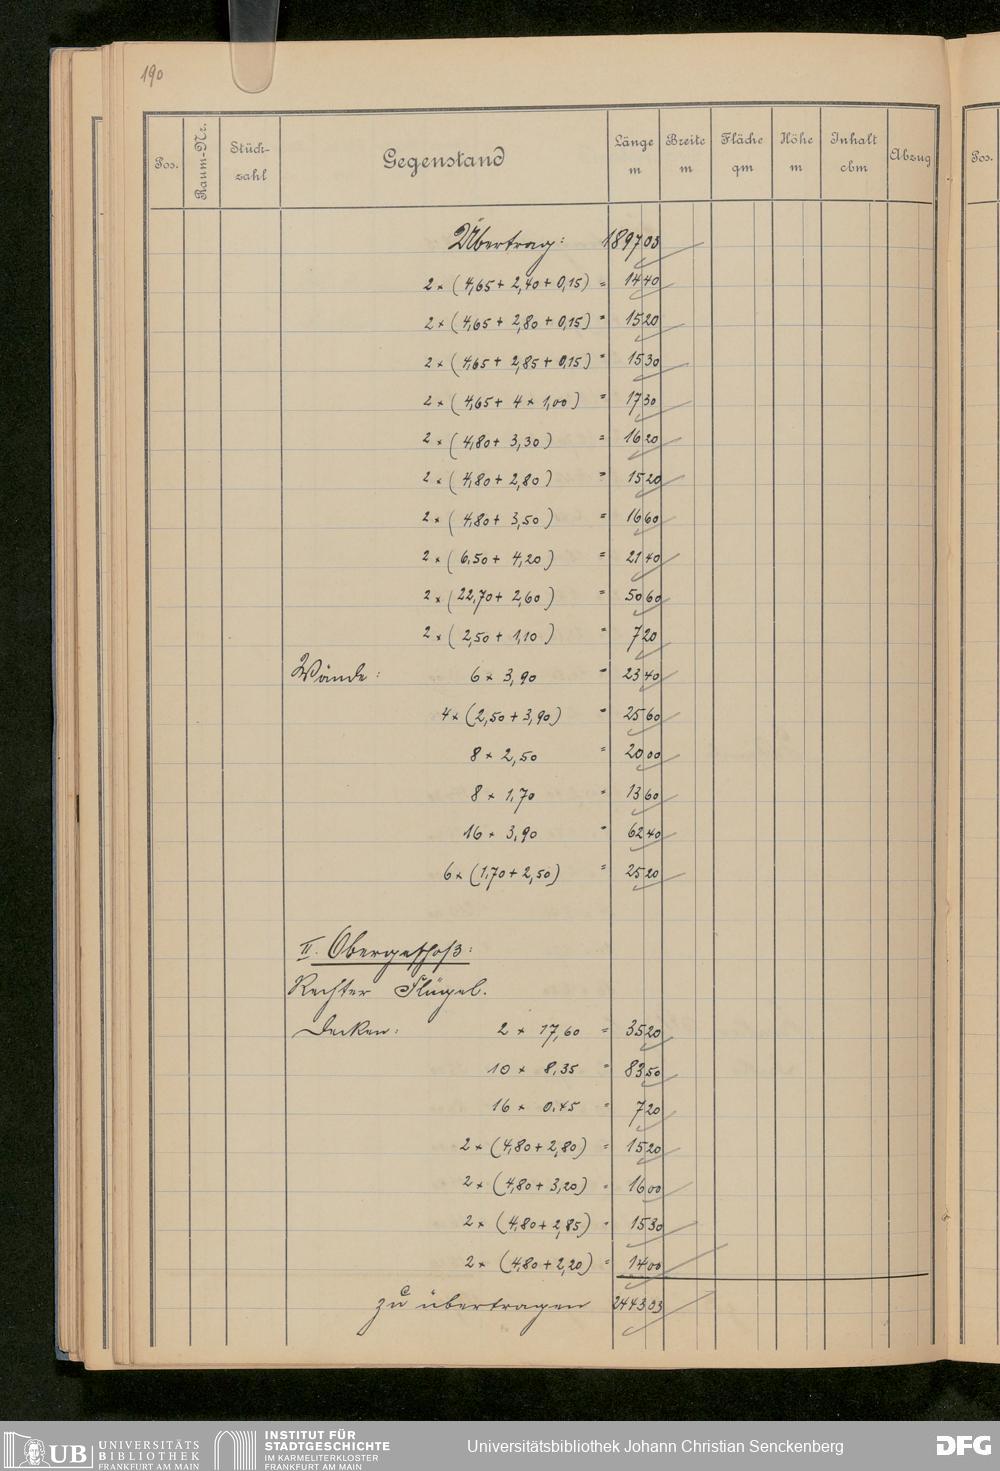 190
Pos. Raum-Nr. Stück-zahl Gegenstand Länge m Breite m Fläche qm Höhe m Inhalt cbm Abzug Pos.
Übertrag: 1897 03
2 × (4,65 + 2,40 + 0,15) = 14 40
2 × (4,65 + 2,80 + 0,15) = 15 20
2 × (4,65 + 2,85 + 0,15) = 15 30
2 × (4,65 + 4 × 1,00) = 17 30
2 × (4,80 + 3,30) = 16 20
2 × (4,80 + 2,80) = 15 20
2 × (4,80 + 3,50) = 16 60
2 × (6,50 + 4,20) = 21 40
2 × (22,70 + 2,60) = 50 60
2 × (2,50 + 1,10) = 7 20
Wände: 6 × 3,90 = 23 40
4 × (2,50 + 3,90) = 25 60
8 × 2,50 = 20 00
8 × 1,70 = 13 60
16 × 3,90 = 62 40
6 × (1,70 + 2,50) = 25 20
II. Obergeschoß:
Rechter Flügel.
Decken: 2 × 17,60 = 35 20
10 × 8,35 = 83 50
16 × 0,45 = 7 20
2 × (4,80 + 2,80) = 15 20
2 × (4,80 + 3,20) = 16 00
2 × (4,80 + 2,85) = 15 30
2 × (4,80 + 2,20) = 14 00
zu übertragen 2443 03
UB UNIVERSITÄTS BIBLIOTHEK FRANKFURT AM MAIN
INSTITUT FÜR STADTGESCHICHTE IM KARMELITERKLOSTER FRANKFURT AM MAIN
Universitätsbibliothek Johann Christian Senckenberg
DFG